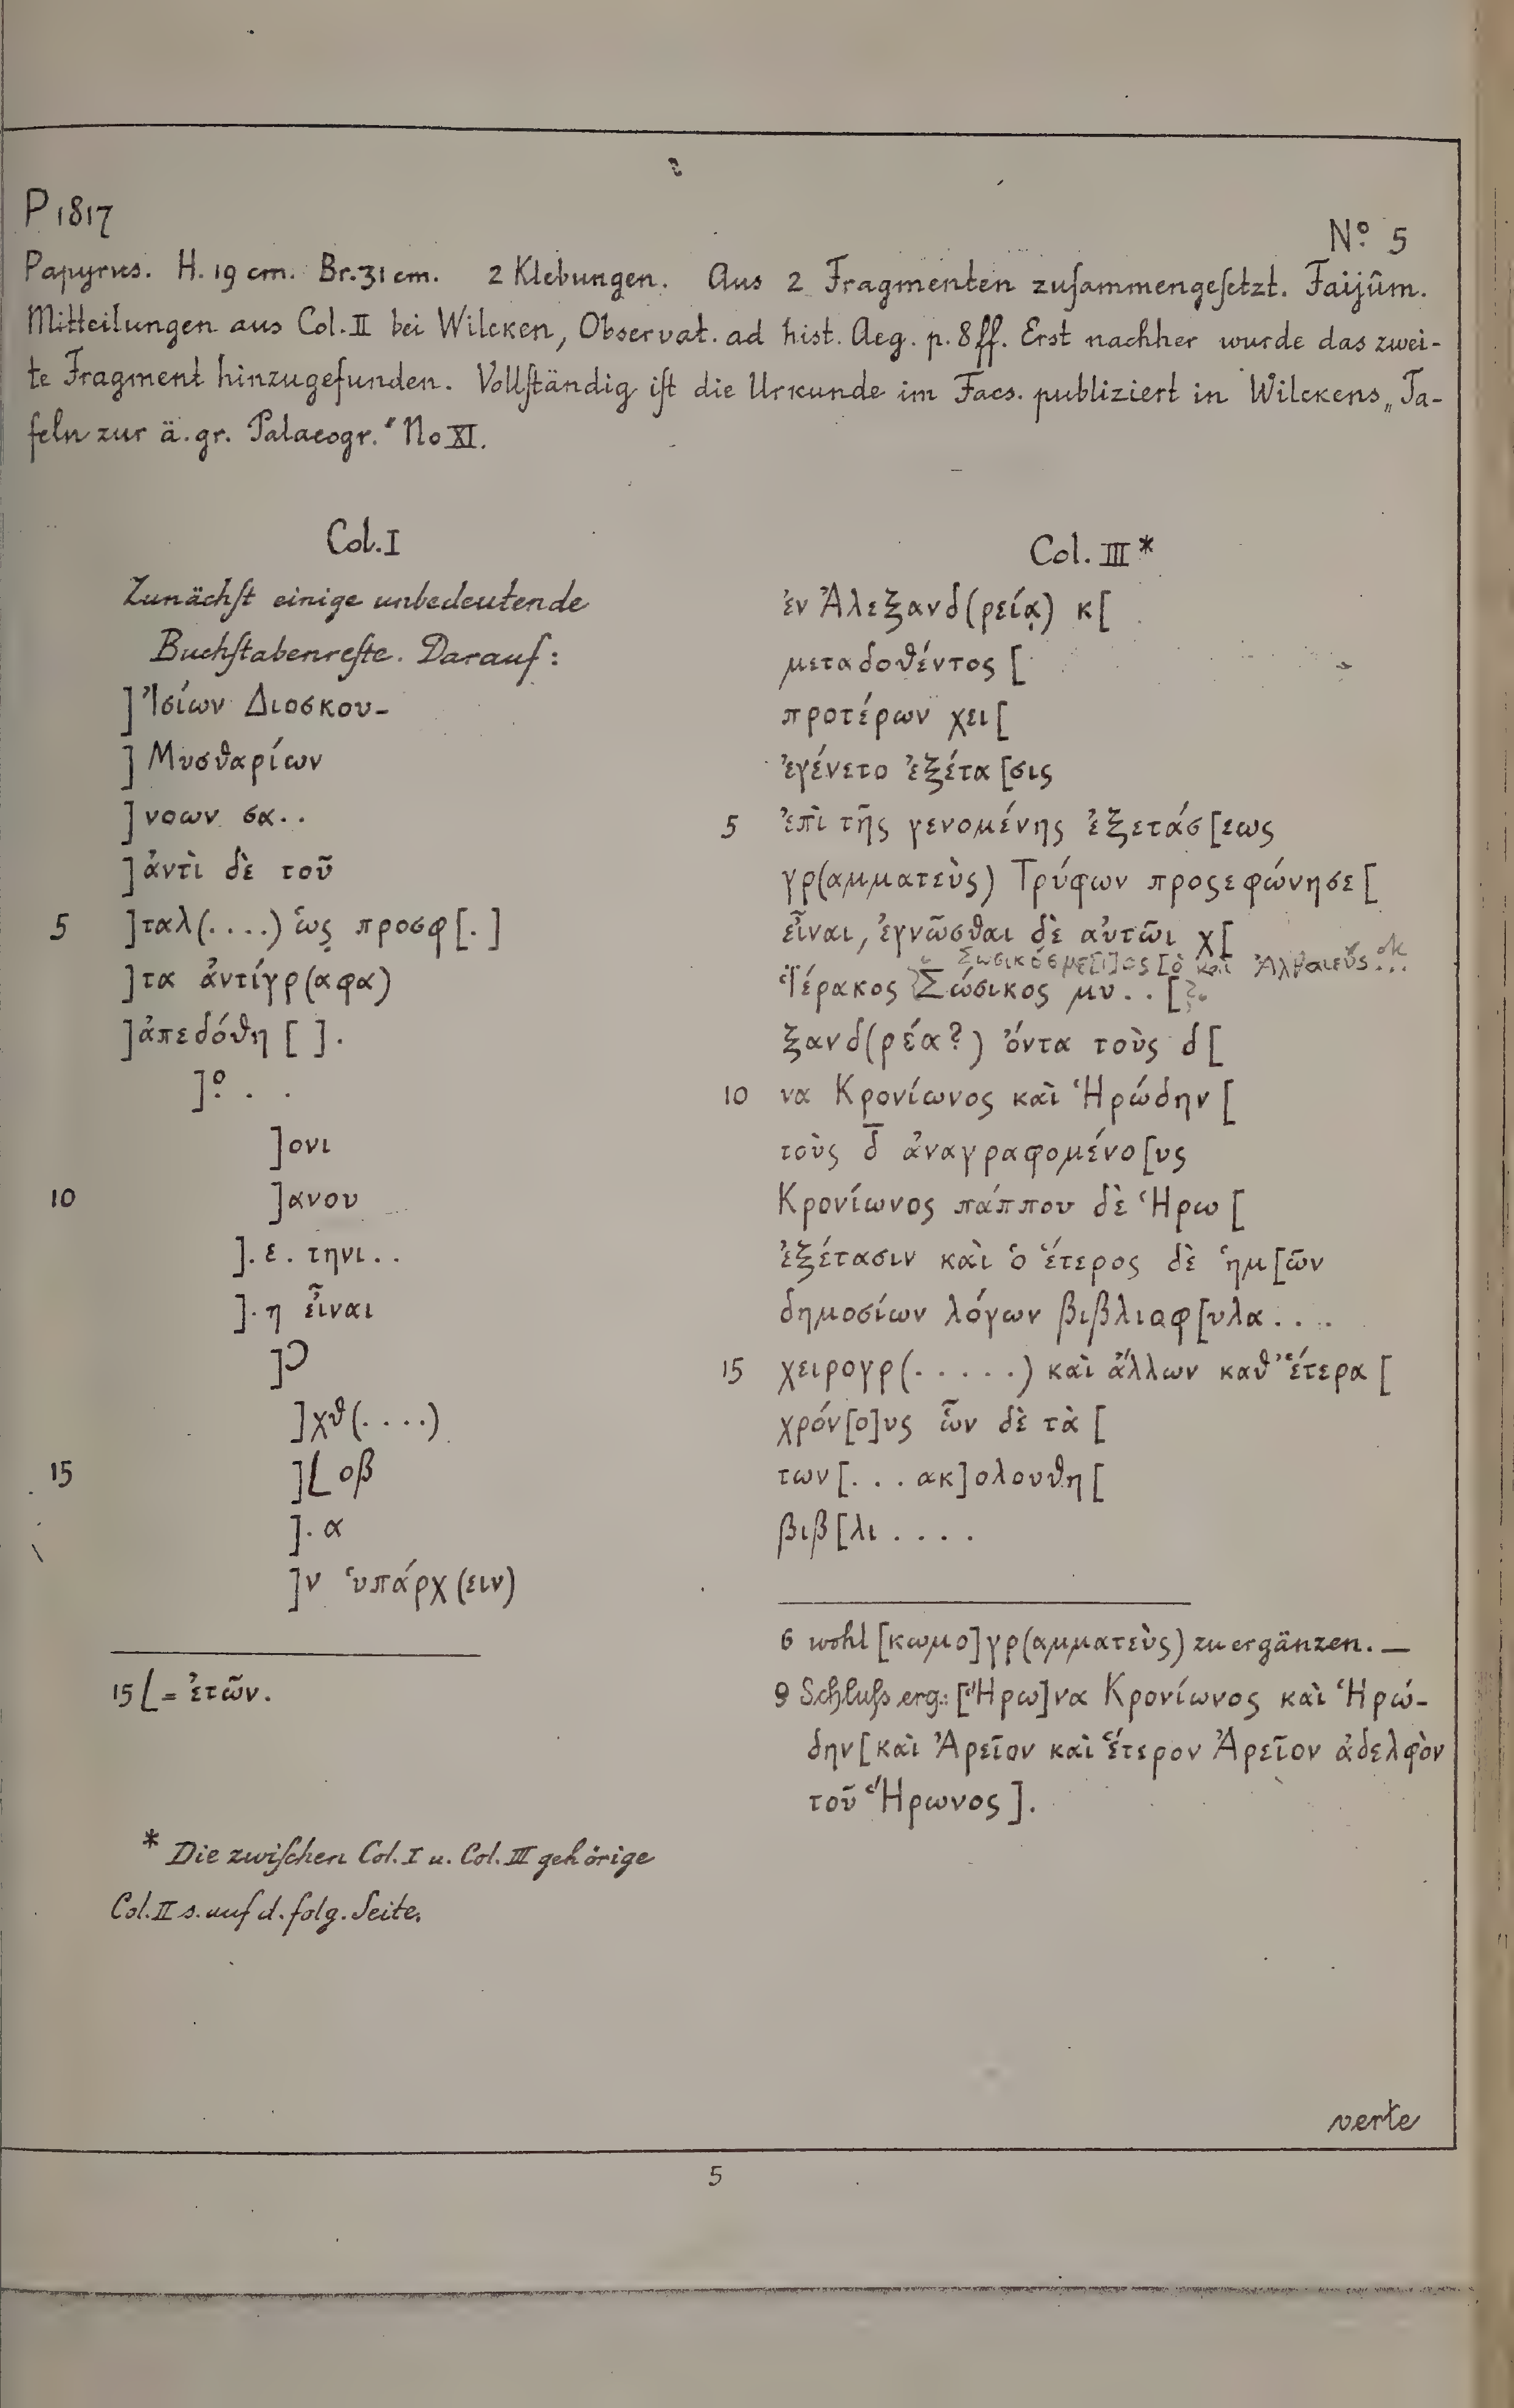 P 1817
Nº 5
Papyrus. H. 19 cm. Br. 31 cm. 2 Klebungen. Aus 2 Fragmenten zusammengesetzt. Faijûm.
Mitteilungen aus Col. II bei Wilcken, Observat. ad hist. Aeg. p. 8 ff. Erst nachher wurde das zwei-
te Fragment hinzugefunden. Vollständig ist die Urkunde im Facs. publiziert in Wilckens „Ta-
feln zur ä. gr. Palaeogr." No XI.
Col. I
Zunächst einige unbedeutende
Buchstabenreste. Darauf:
] Ἰσίων Διοσκου-
] Μυσθαρίων
] νοων σα..
] ἀντὶ δὲ τοῦ
5 ]ταλ(....) ἕως προσφ[.]
]τα ἀντίγρ(αφα)
]ἀπεδόθη [ ].
]ο. . .
]ονι
10 ]ανου
]. ε. τηνι..
]. η εἶναι
]Ɔ
]χθ(....)
15 ]L οβ
]. α
]ν ὑπάρχ(ειν)
15 L = ἐτῶν.
* Die zwischen Col. I u. Col. III gehörige
Col. II s. auf d. folg. Seite.
Col. III *
ἐν Ἀλεξανδ(ρείᾳ) κ[
μεταδοθέντος [
προτέρων χει[
ἐγένετο ἐξέτα[σις
5 ἐπὶ τῆς γενομένης ἐξετάσ[εως
γρ(αμματεὺς) Τρύφων προςεφώνησε[
εἶναι, ἐγνῶσθαι δὲ αὐτῶι χ[
Σωσικόσμε[ι]ος [ὁ καὶ Ἀλθαιεὺς
Ἱέρακος Σώσικος μν..[
ξανδ(ρέα?) ὄντα τοὺς δ[
10 να Κρονίωνος καὶ Ἡρώδην [
τοὺς δ̅ ἀναγραφομένο[υς
Κρονίωνος πάππου δὲ Ἡρω[
ἐξέτασιν καὶ ὁ ἕτερος δὲ ἡμ[ῶν
δημοσίων λόγων βιβλιοφ[υλα....
15 χειρογρ(.....) καὶ ἄλλων καθ' ἕτερα [
χρόν[ο]υς ὧν δὲ τὰ [
των[... ακ]ολουθη[
βιβ[λι....
6 wohl [κωμο]γρ(αμματεὺς) zu ergänzen. —
9 Schluss erg.: [Ἥρω]να Κρονίωνος καὶ Ἡρώ-
δην [καὶ Ἀρεῖον καὶ ἕτερον Ἀρεῖον ἀδελφὸν
τοῦ Ἥρωνος].
verte
5